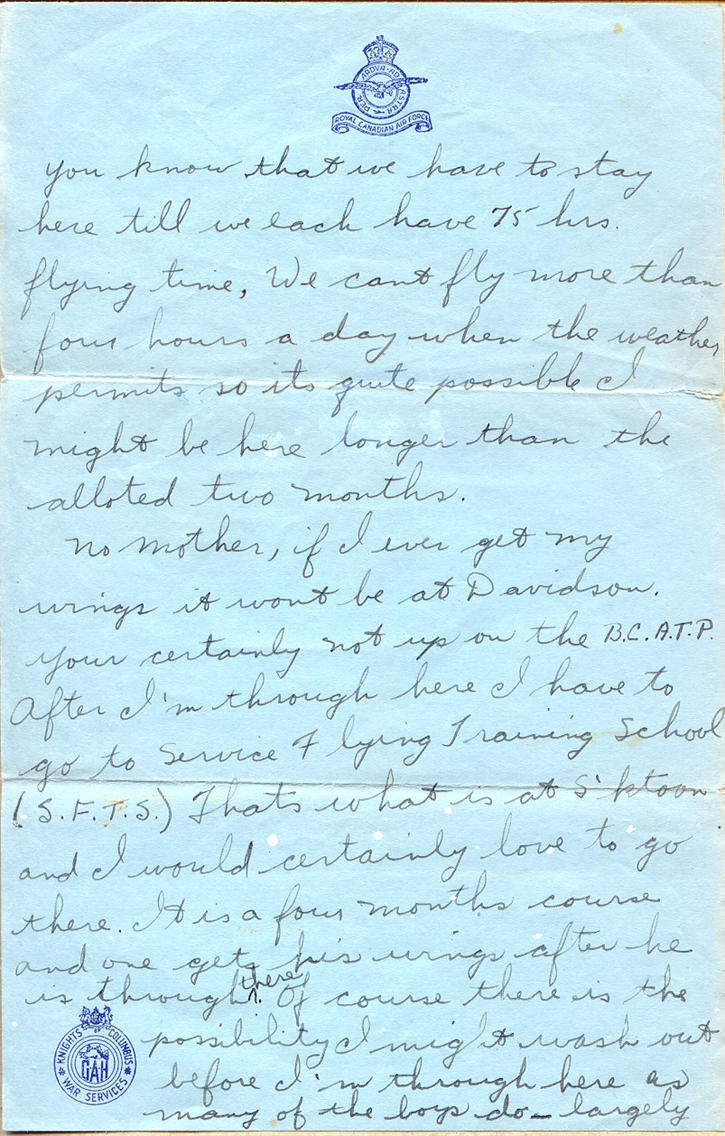 PER ARDVA AD ASTRA
ROYAL CANADIAN AIR FORCE
you know that we have to stay
here till we each have 75 hrs.
flying time, We cant fly more than
four hours a day when the weather
permits so its quite possible I
might be here longer than the
alloted two months.
No mother, if I ever get my
wings it wont be at Davidson.
Your certainly not up on the B.C.A.T.P.
After I'm through here I have to
go to Service Flying Training School
(S.F.T.S.) Thats what is at S'ktoon
and I would certainly love to go
there. It is a four months course
and one gets his wings after he
is through there. Of course there is the
possibility I might wash out
before I'm through here as
many of the boys do - largely
KNIGHTS OF COLUMBUS
CAH
WAR SERVICES